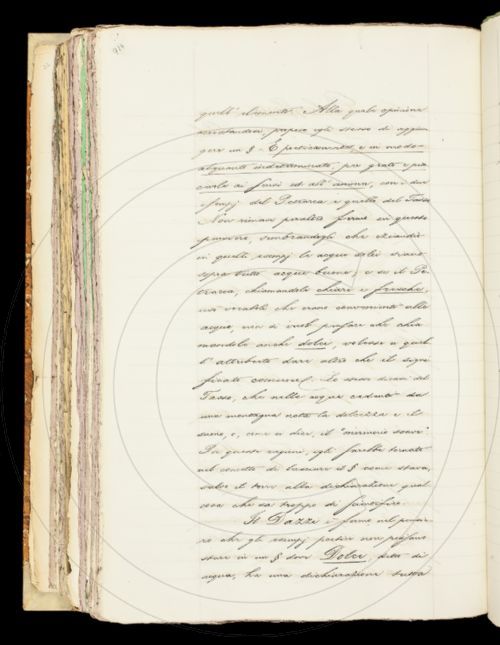 quell' elemento. Alla quale opinione
accostandosi, propose egli stesso di aggiun
gere un § - E poeticamente, e in modo
alquanto indeterminato, per grato e pia
cevole ai sensi ed all' animo, con i due
esempj del Petrarca e quello del Tasso
Non rimase peraltro fermo in questo
pensiero, sembrandogli che
in quelli esempj le acque dolci siano
sopra tutto acque buone; e se il Pe
trarca, chiamandole chiare e fresche,
che erano convenienti alle
acque, non si vuol pensare che chia
mandole anche dolci, volesse a quel
l' attributo dare altro che il signi
ficato comune. Lo stesso dicasi del
Tasso, che nelle acque cadenti da
una montagna nota la dolcezza e il
suono, e, come ei dice, il "mormorio soave"
Per queste ragioni, egli sarebbe tornato
nel concetto di lasciare il § come stava,
salvo il torre alla dichiarazione quel
cosa che sa troppo di scientifico.
Il Dazzi è fermo nel pensie
ro che gli esempj poetici non possano
stare in un § dove Dolce, detto di
acqua, ha una dichiarazione tutta